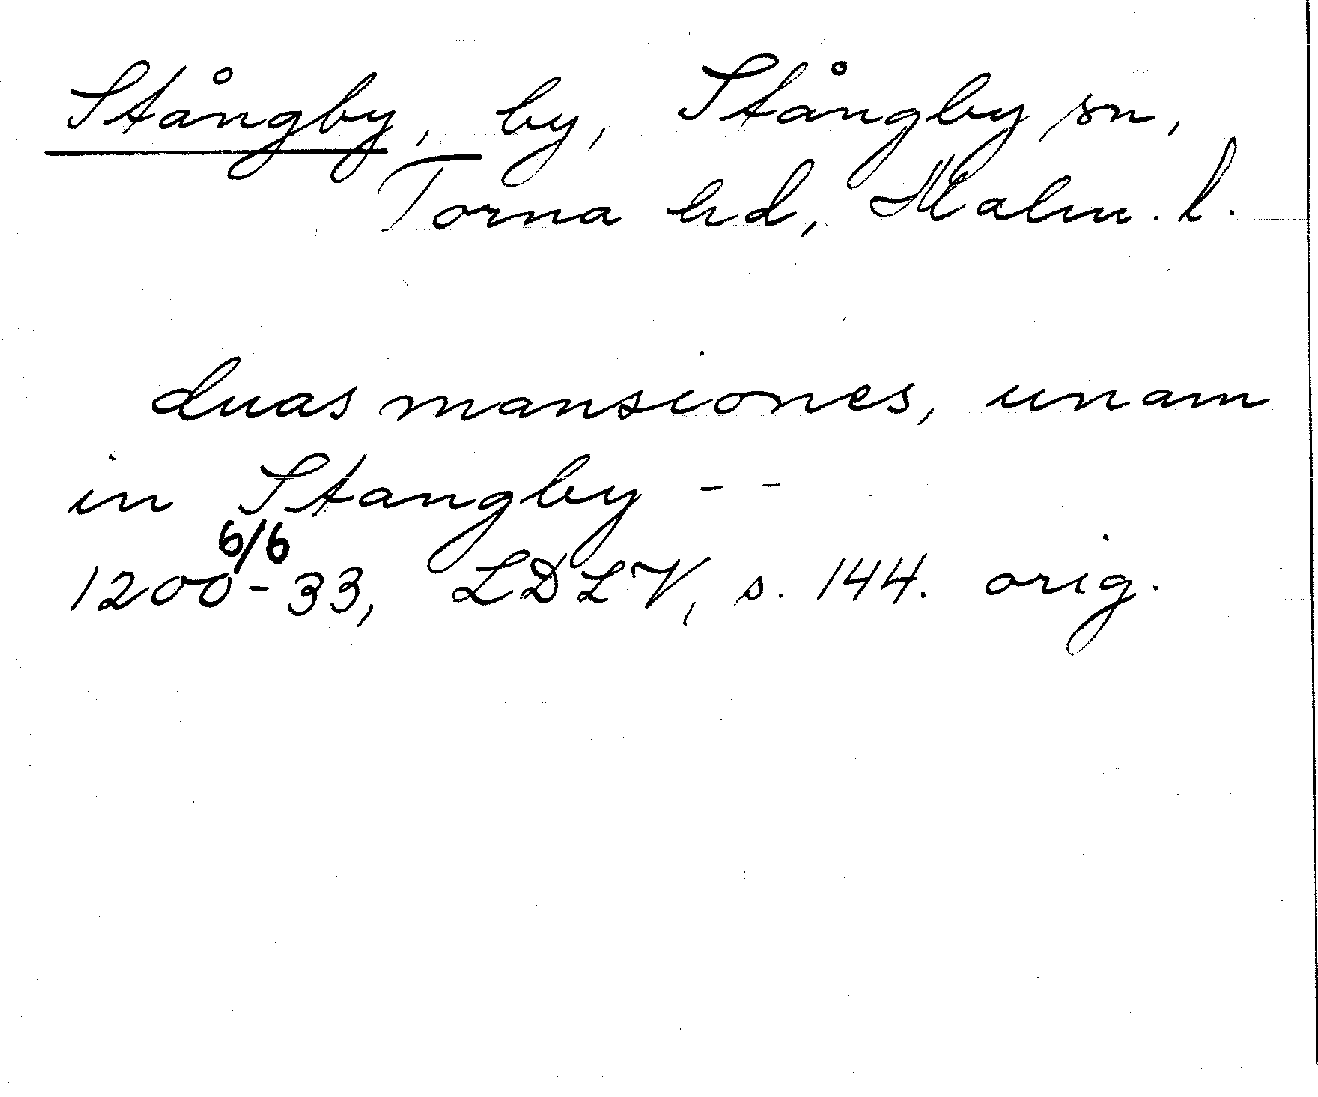 Stångby, by, Stångby sn,
Torna hd, Malm. l.
duas mansiones, unam
in Stangby - -
6/6
1200-33, LDLV, s. 144. orig.